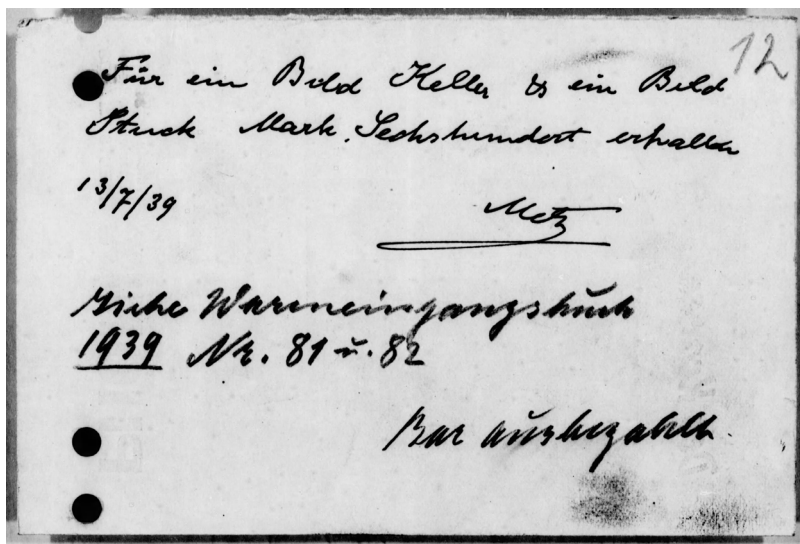 12
Für ein Bild Keller & ein Bild
Stuck Mark. Sechshundert erhalten
13/7/39 Metz
Siehe Wareneingangsbuch
1939 Nr. 81 u. 82
Bar ausbezahlt.